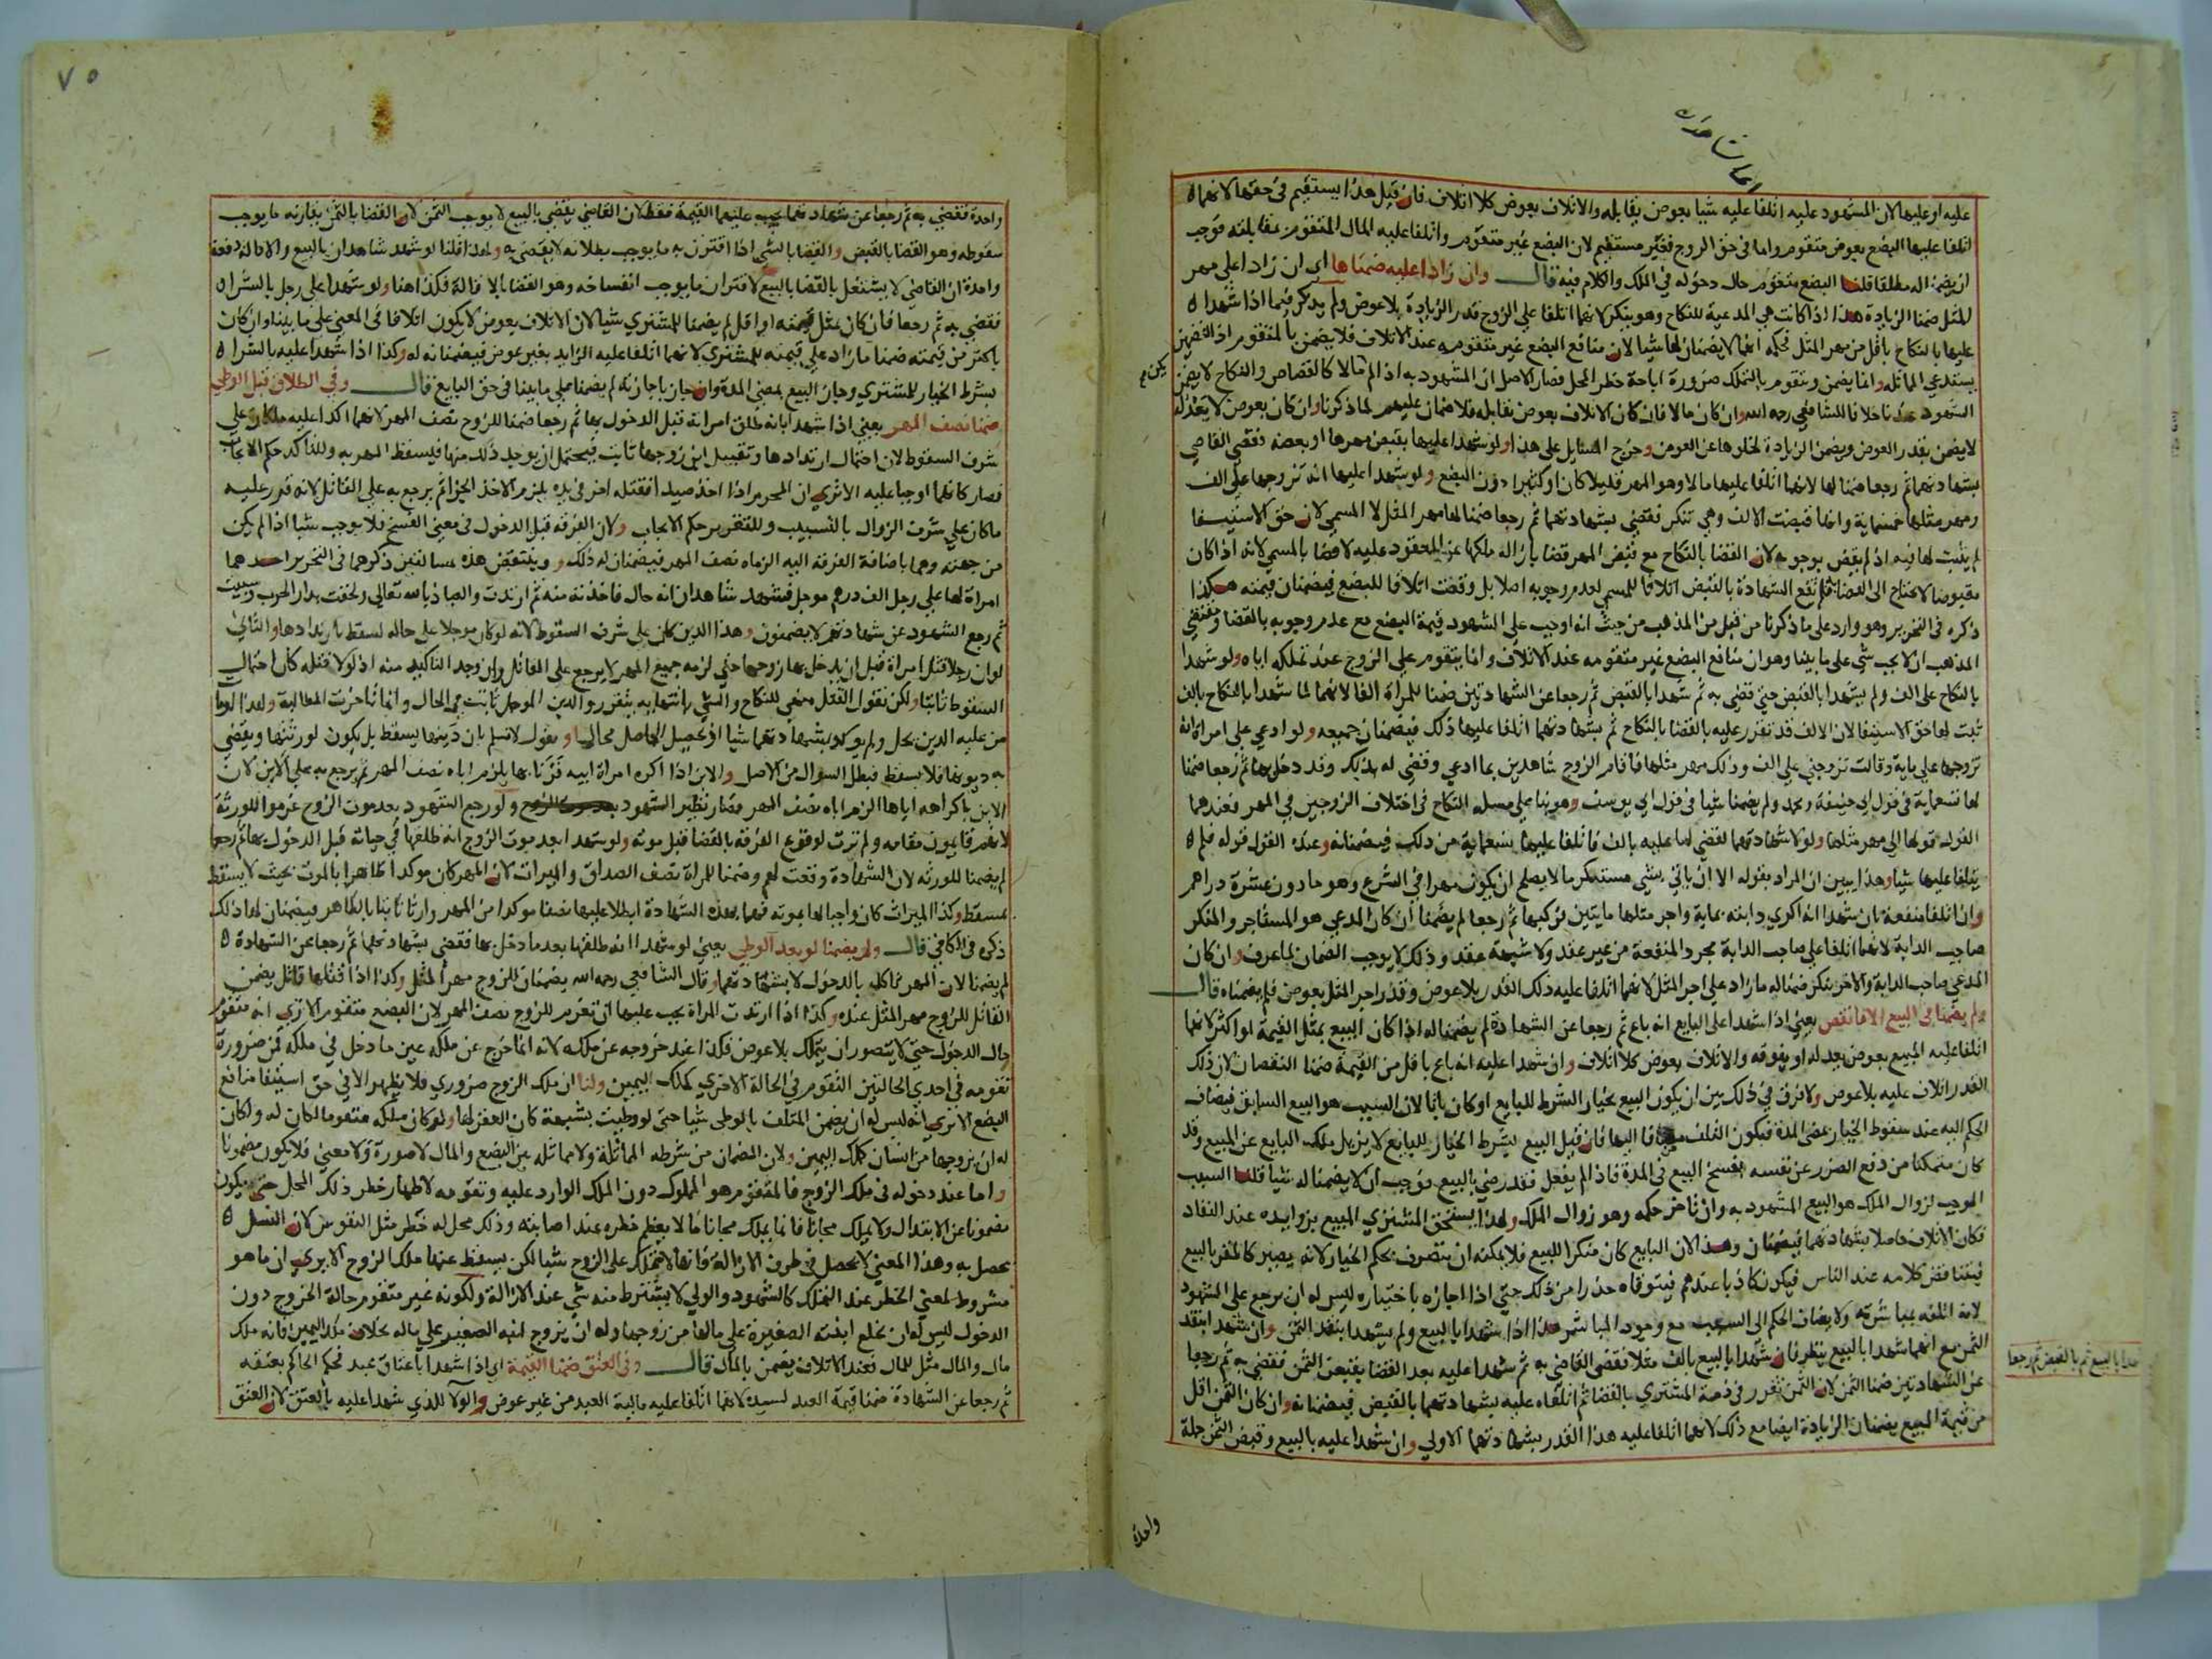 عليه او عليها لان المشهود عليه اتلفا عليه شيا بعوض يقابله والاتلاف بعوض كلا اتلاف فان قيل هذا يستقيم في حقها لانهما
اتلفا عليها البضع بعوض متقوم واما في حق الزوج فغير مستقيم لان البضع غير متقوم واتلفا عليه المال المتقوم بمقابلته فوجب
ان يضمنا له مطلقا قلنا البضع متقوم حال دخوله في الملك والكلام فيه قال وان زادا عليه ضمناها اي ان زادا على مهر
المثل ضمنا الزيادة هذا اذا كانت هي المدعية للنكاح وهو ينكر لانهما اتلفا على الزوج قدر الزيادة بلا عوض ولم يذكر فيما اذا شهدا
عليها بالنكاح باقل من مهر المثل فحكمه انهما لا يضمنان لها شيا لان منافع البضع غير متقومه عند الاتلاف فلا يضمن بالمتقوم اذ التضمين
يستدعي المماثله وانما يضمن ويتقوم بالتملك ضرورة اباحة خطر المحل فصار الاصل ان المشهود به اذا لم يكن مالا كالقصاص والنكاح لا يضمن
الشهود عندنا خلافا للشافعي رحمه الله وان كان مالا فان كان الاتلاف بعوض يقابله فلا ضمان عليهم لما ذكرنا وان كان بعوض لا يعدله
لا يضمن بقدر العوض ويضمن الزيادة لخلوها عن العوض وخرج المسايل على هذا ولو شهدا عليها بقبض مهرها او بعضه فقضي القاضي
بشهادتهما ثم رجعا ضمنا لها لانهما اتلفا عليها مالا وهو المهر قليلا كان او كثيرا دون البضع ولو شهدا عليها انه تزوجها على الف
ومهر مثلها خمسماية وانها قبضت الالف وهي تنكر فقضي بشهادتهما ثم رجعا ضمنا لها مهر المثل لا المسمى لان حق الاستيفا
لم يثبت لها فيه اذ لم يقض بوجوبه لان القضا بالنكاح مع قبض المهر قضا بازالة ملكها عن المعقود عليه لا قضا بالمسمى لانه اذا كان
مقبوضا لا يحتاج الى القضا فلم تقع الشهادة بالقبض اتلافا للمسمى لعدم وجوبه اصلا بل وقعت اتلافا للبضع فيضمنان قيمته هكذا
ذكره في التحرير وهو وارد على ما ذكرنا من قبل من المذهب من حيث انه اوجب على الشهود قيمة البضع مع عدم وجوبه بالقضا ومقتضي
المذهب ان لا يجب شي على ما بينا وهو ان منافع البضع غير متقومه عند الاتلاف وانما يتقوم على الزوج عند تملكه اياه ولو شهدا
بالنكاح على الف ولم يشهدا بالقبض حتى قضي به ثم شهدا بالقبض ثم رجعا عن الشهادتين ضمنا للمراة الفا لانهما لما شهدا بالنكاح بالف
ثبت لها حق الاستيفا لان الالف قد تقرر عليه بالقضا بالنكاح ثم بشهادتهما اتلفا عليها ذلك فيضمنان جميعه ولو ادعي على امراة انه
تزوجها على ماية وقالت تزوجني على الف وذلك مهر مثلها فاقام الزوج شاهدين بما ادعي وقضي له بذلك وقد دخل بها ثم رجعا ضمنا
لها تسعماية في قول ابي حنيفة ومحمد ولم يضمنا شيا في قول ابي يوسف وهو بنا على مسله النكاح في اختلاف الزوجين في المهر فعندهما
القول قولها الى مهر مثلها ولولا شهادتهما لقضي لها عليه بالف فاتلفا عليها تسعماية من ذلك فيضمنانه وعنده القول قوله فلم
يتلفا عليها شيا وهذا يبين ان المراد بقوله الا ان ياتي بشي مستنكر ما لا يصلح ان يكون مهرا في الشرع وهو ما دون عشرة دراهم
وان اتلفا منفعة بان شهدا انه اكري دابته بماية واجر مثلها مايتين فركبها ثم رجعا لم يضمنا ان كان المدعي هو المستاجر والمنكر
صاحب الدابة لانهما اتلفا على صاحب الدابة مجرد المنفعة من غير عقد ولا شبهة عقد وذلك لا يوجب الضمان لما عرف وان كان
المدعي صاحب الدابة والاخر ينكر ضمنا له ما زاد على اجر المثل لانهما اتلفا عليه ذلك القدر بلا عوض وقدر اجر المثل بعوض فلم يضمناه قال
ولم يضمنا في البيع الا ما نقص يعني اذا شهدا على البايع انه باع ثم رجعا عن الشهادة لم يضمنا له اذا كان البيع بمثل القيمة او اكثر لانهما
اتلفا عليه المبيع بعوض يعدله او يفوقه والاتلاف بعوض كلا اتلاف وان شهدا عليه انه باع باقل من القيمة ضمنا النقصان لان ذلك
القدر اتلاف عليه بلا عوض ولا فرق في ذلك بين ان يكون البيع بخيار الشرط للبايع او كان باتا لان السبب هو البيع السابق فيضاف
الحكم اليه عند سقوط الخيار بمضي المدة فيكون التلف مضافا اليها فان قيل البيع بشرط الخيار للبايع لا يزيل ملك البايع عن المبيع وقد
كان متمكنا من دفع الضرر عن نفسه بفسخ البيع في المدة فاذا لم يفعل فقد رضي بالبيع فوجب ان لا يضمنا له شيا قلنا السبب
الموجب لزوال الملك هو البيع المشهود به وان تاخر حكمه وهو زوال الملك ولهذا يستحق المشتري المبيع بزوايده عند النفاد
فكان الاتلاف حاصلا بشهادتهما فيضمنان وهذا لان البايع كان منكرا للبيع فلا يمكنه ان يتصرف بحكم الخيار لانه يصير كالمقر بالبيع
فيتناقض كلامه عند الناس فيكون كاذبا عندهم فيتوقاه حذرا من ذلك حتى اذا اجازه باختياره ليس له ان يرجع على الشهود
لانه اتلفه بمباشرته ولا يضاف الحكم الى السبب مع وجود المباشر هذا اذا شهدا بالبيع ولم يشهدا بنقد الثمن وان شهدا بنقد
الثمن مع انهما شهدا بالبيع ينظر فان شهدا بالبيع بالف مثلا فقضي القاضي به ثم شهدا عليه بعد القضا بقبض الثمن فقضي به ثم رجعا
عن الشهادتين ضمنا الثمن لان الثمن تقرر في ذمة المشتري بالقضا ثم اتلفاه عليه بشهادتهما بالقبض فيضمنانه وان كان الثمن اقل
من قيمة المبيع يضمنان الزيادة ايضا مع ذلك لانهما اتلفا عليه هذا القدر بشهادتهما الاولي وان شهدا عليه بالبيع وقبض الثمن جملة
واحدة
٧٥
واحدة فقضي به ثم رجعا عن شهادتهما يجب عليهما القيمة فقط لان القاضي يقضي بالبيع لا بوجوب الثمن لان القضا بالثمن يقارنه ما يوجب
سقوطه وهو القضا بالقبض والقضا بالشي اذا اقترن به ما يوجب بطلانه لا يقضي به ولهذا قلنا لو شهد شاهدان بالبيع والاقالة دفعة
واحدة ان القاضي لا يشتغل بالقضا بالبيع لاقتران ما يوجب انفساخه وهو القضا بالاقالة فكذا هنا ولو شهدا على رجل بالشراه
فقضي به ثم رجعا فان كان بمثل قيمته او اقل لم يضمنا للمشتري شيا لان الاتلاف بعوض لا يكون اتلافا في المعني على ما بينا وان كان
باكثر من قيمته ضمنا ما زاد على قيمته للمشتري لانهما اتلفا عليه الزايد بغير عوض فيضمنانه له وكذا اذا شهدا عليه بالشراه
بشرط الخيار للمشتري وجاز البيع بمضي المدة وان جاز باجازته لم يضمنا على ما بينا في حق البايع قال وفي الطلاق قبل الوطي
ضمنا نصف المهر يعني اذا شهدا بانه طلق امراته قبل الدخول بها ثم رجعا ضمنا للزوج نصف المهر لانهما اكدا عليه ما كان على
شرف السقوط لان احتمال ارتدادها وتقبيل ابن زوجها ثابت فيحتمل ان يوجد ذلك منها فيسقط المهر به وللتأكد حكم الايجاب
فصار كانهما اوجبا عليه الا تري ان المحرم اذا اخذ صيدا فقتله اخر في يده يلزم الاخذ الجزا ثم يرجع به على القاتل لانه قرر عليه
ما كان على شرف الزوال بالتسبيب وللتقرير حكم الايجاب ولان الفرقة قبل الدخول في معني الفسخ فلا يوجب شيا اذا لم يكن
من جهته وهما باضافة الفرقة اليه الزماه نصف المهر فيضمنان له ذلك وينتقض هذه بمسالتين ذكرهما في التحرير احدهما
امراة لها على رجل الف درهم موجل فشهد شاهدان انه حال فاخذته منه ثم ارتدت والعياذ بالله تعالى ولحقت بدار الحرب وسبيت
ثم رجع الشهود عن شهادتهم لا يضمنون وهذا الدين كان على شرف السقوط لانه لو كان موجلا على حاله لسقط بارتدادها والثاني
لو ان رجلا قتل امراة قبل ان يدخل بها زوجها حتى لزمه جميع المهر لا يرجع على القاتل وان وجد التاكيد منه اذ لولا قتله كان احتمال
السقوط ثابتا ولكن نقول القتل منهي للنكاح والشي بانتهايه يتقرر والدين الموجل ثابت في الحال وانما تاخرت المطالبة ولهذا لو مات
من عليه الدين يحل ولم يوكدا بشهادتهما شيا اذ تحصيل الحاصل محال او نقول لا نسلم بان دينها يسقط بل يكون لورثتها ويقضي
به ديونها فلا يسقط فبطل السوال من الاصل والابن اذا اكره امراة ابيه فزنا بها يلزم اباه نصف المهر ثم يرجع به على الابن لان
الابن باكراهه اياها الزم اباه نصف المهر فصار نظير الشهود ولو رجع الشهود بعد موت الزوج غرموا للورثة
لانهم قايمون مقامه ولم ترث لوقوع الفرقة بالقضا قبل موته ولو شهدا بعد موت الزوج انه طلقها في حياته قبل الدخول بها ثم رجعا
لم يضمنا للورثه لان الشهادة وقعت لهم وضمنا للمراة نصف الصداق والميراث لان المهر كان موكدا ظاهرا بالموت بحيث لا يسقط
بمسقط وكذا الميراث كان واجبا لها بموته فهما بهذه الشهادة ابطلا عليها نصفا موكدا من المهر وارثا ثابتا بالظاهر فيضمنان لها ذلك
ذكره في الكافي قال ولم يضمنا لو بعد الوطي يعني لو شهدا انه طلقها بعد ما دخل بها فقضي بشهادتهما ثم رجعا عن الشهادة
لم يضمنا لان المهر تاكد بالدخول لا بشهادتهما وقال الشافعي رحمه الله يضمنان للزوج مهر المثل وكذا اذا قتلها قاتل يضمن
القاتل للزوج مهر المثل عنده وكذا اذا ارتدت المراة يجب عليها ان تغرم للزوج نصف المهر لان البضع متقوم الا تري انه متقوم
حال الدخول حتى لا يتصور ان يتملك بلا عوض فكذا عند خروجه عن ملكه لانه انما خرج عن ملكه عين ما دخل في ملكه فمن ضرورة
تقومه في احدي الحالتين التقوم في الحالة الاخري كملك اليمين ولنا ان ملك الزوج ضروري فلا يظهر الا في حق استيفا منافع
البضع الا تري انه ليس له ان يضمن المتلف بالوطي شيا حتى لو وطيت بشبهة كان العقر لها ولو كان ملكه متقوما لكان له ولكان
له ان يزوجها من انسان كملك اليمين ولان الضمان من شرطه المماثلة ولا مماثله بين البضع والمال لا صورة ولا معني فلا يكون مضمونا
واما عند دخوله في ملك الزوج فالمتقوم هو المملوك دون الملك الوارد عليه وتقومه لاظهار خطر ذلك المحل حتى يكون
مضمونا عن الابتذال ولا يملك مجانا فانما يملك مجانا ما لا يعظم خطره عند اصابته وذلك محل له خطر مثل النفوس لان النسل
يحصل به وهذا المعني لا يحصل في طرف الازالة فانها لا تتملك على الزوج شيا لكن يسقط عنها ملك الزوج الا يري ان ما هو
مشروط لمعني الخطر عند التملك كالشهود والولي لا يشترط منه شي عند الازالة ولكونه غير متقوم حالة الخروج دون
الدخول ليس له ان يخلع ابنته الصغيرة على مالها من زوجها وله ان يزوج ابنه الصغير على ماله بخلاف ملك اليمين فانه ملك
مال والمال مثل المال فعند الاتلاف يضمن بالمال قال وفي العتق ضمنا القيمة اي اذا شهدا باعتاق عبد فحكم الحاكم بعتقه
ثم رجعا عن الشهادة ضمنا قيمة العبد لسيده لانهما اتلفا عليه مالية العبد من غير عوض والولا للذي شهدا عليه بالعتق لان العتق